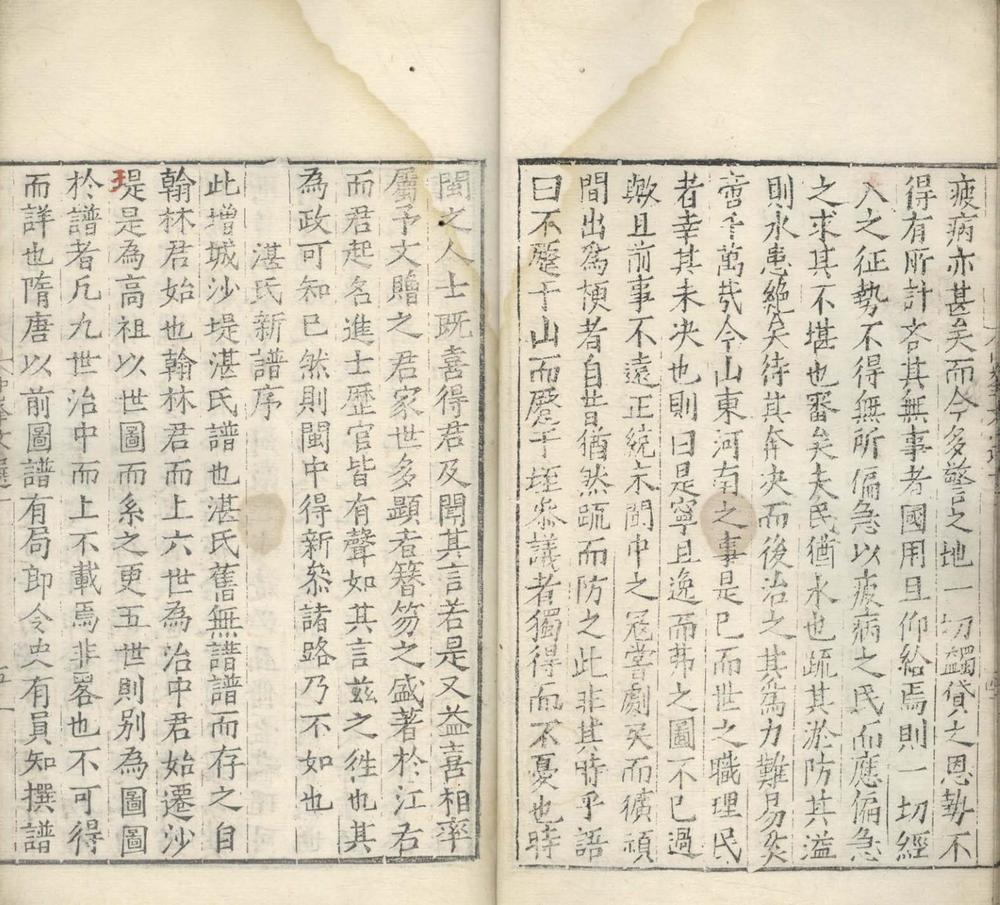 疲病亦甚矣而今多警之地一切蠲貸之恩勢不
得有所計吝其無事者國用且仰給焉則一切經
入之征勢不得無所偏急以疲病之民而應偏急
之求其不堪也審矣夫民猶水也疏其淤防其溢
則水患絶矣待其奔决而後治之其為力難易奚
啻千萬哉今山東河南之事是已而世之職理民
者幸其未决也則曰是寧且逸而弗之圖不已過
歟且前事不遠正統末閩中之冦嘗劇矣而獷頑
間出為梗者自昔猶然疏而防之此非其時乎語
曰不躓于山而躓于垤叅議者獨得而不憂也時
閩之人士既喜得君及聞其言若是又益喜相率
屬予文贈之君家世多顯者簪笏之盛著於江右
而君起名進士歷官皆有聲如其言兹之徃也其
為政可知已然則閩中得新叅諸路乃不如也
湛氏新譜序
此增城沙堤湛氏譜也湛氏舊無譜譜而存之自
翰林君始也翰林君而上六世為治中君始遷沙
堤是為高祖以世圖而系之更五世則别為圖圖
於譜者凡九世治中而上不載焉非畧也不可得
而詳也隋唐以前圖譜有局郎令史有員知撰譜